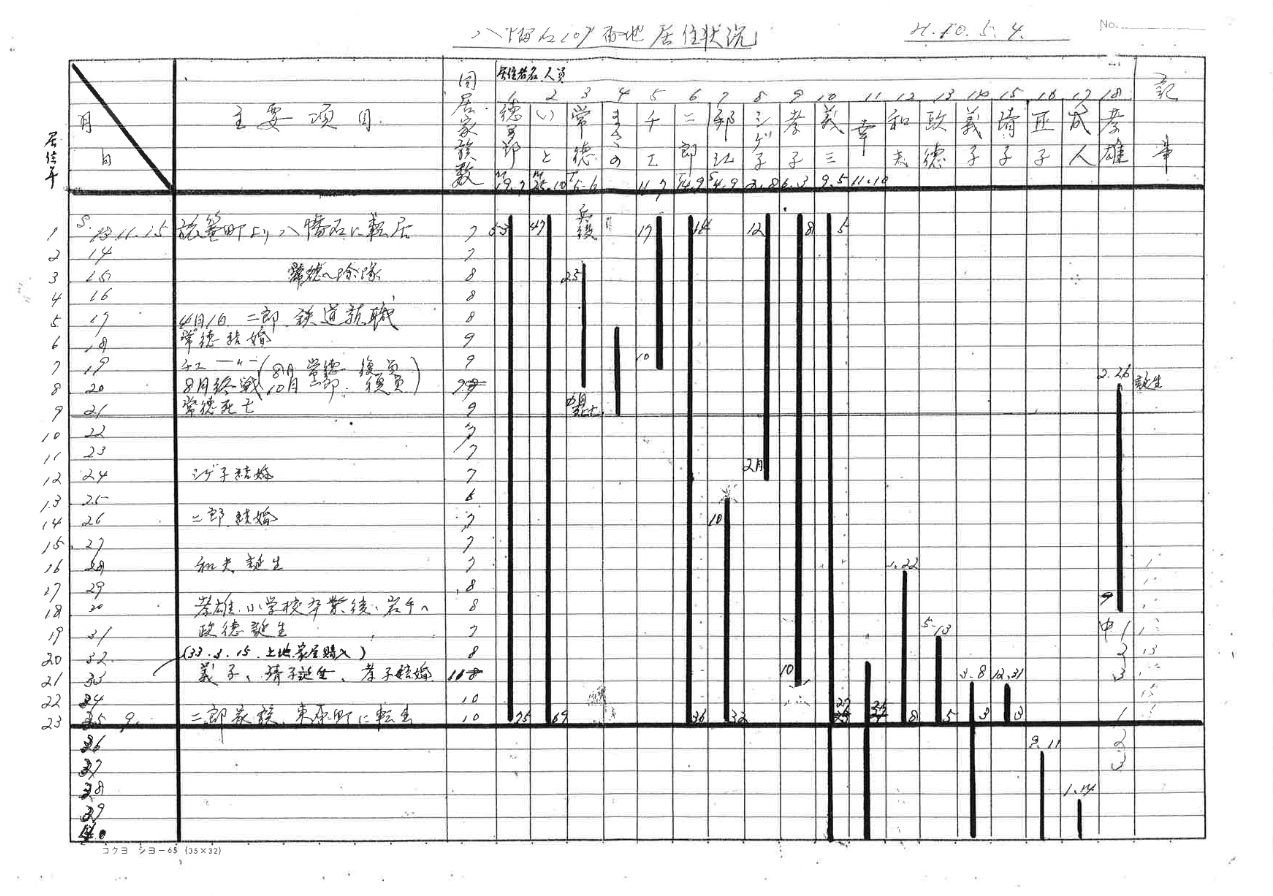 八幡石107番地居住状況
H.10.5.4.
No.
居住者名、人員
月
日
居住年
主要項目
同居家族数
1 2 3 4 5 6 7 8 9 10 11 12 13 14 15 16 17 18
徳 いと 常徳 チエ 二郎 シゲ子 孝子 義三 幸 和夫 政徳 義子 靖子 正子 成人 孝雄
記事
19.7 25.10 11.7 4.9 6.3 9.5 11.10
1 S.13.11.15 旅篭町より八幡石に転居 7 53 47 兵役 17 14 12 8 5
2 14 7
3 15 常徳へ除隊 8 23
4 16 8
5 17 4月16 二郎、鉄道就職 8
6 18 常徳結婚 9
7 19 チエ 〃 (8月 常徳 復員 9 10
8 20 8月終戦 10月 二郎 復員) 2.26 誕生
9 21 常徳死亡 9 死亡
10 22 7
11 23 7
12 24 シゲ子結婚 7 2月
13 25 6
14 26 二郎結婚 7 10
15 27 7
16 28 和夫誕生 7 1.22
17 29 8
18 30 孝雄、小学校卒業後、岩手へ 8 9
19 31 政徳誕生 7 5.13 中1
20 32 (33.3.15.土地家屋購入) 8 2
21 33 義子、靖子誕生、孝子結婚 10 3.8 12.31 3
22 34 10
23 35 9. 二郎家族、東原町に転出 10 75 69 36 32 8 5 3 3 1
36 9.11 2
37 3
38 1.14
39
40
コクヨ シヨー65 (35×32)